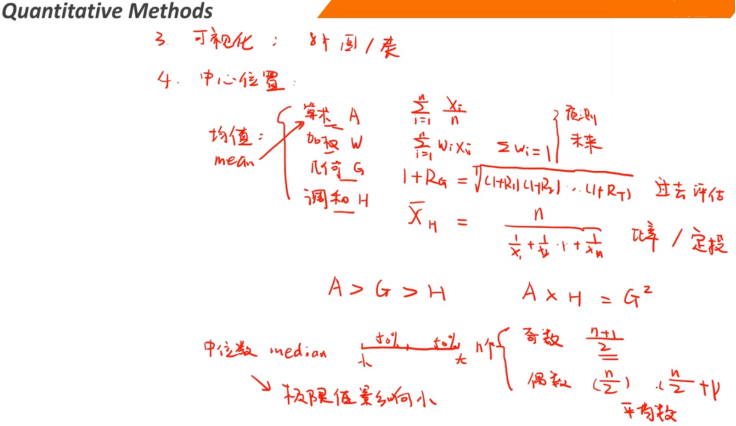 Quantitative Methods
3. 可视化: 8个图/类
4. 中心位置:
均值: mean
算术 A $\sum_{i=1}^{n} \frac{X_i}{n}$
加权 W $\sum_{i=1}^{n} w_i x_i$ $\sum w_i = 1$ } 预测未来
几何 G $1+R_G = \sqrt[T]{(1+R_1)(1+R_2)\cdots(1+R_T)}$ 过去评估
调和 H $\overline{X}_H = \frac{n}{\frac{1}{x_1}+\frac{1}{x_2}\cdots+\frac{1}{x_n}}$ 比率/定投
A > G > H A × H = G²
中位数 median 50% 50% 小 大 n个
奇数 $\frac{n+1}{2}$
偶数 $(\frac{n}{2})$ , $(\frac{n}{2}+1)$ 平均数
↘ 极限值影响小